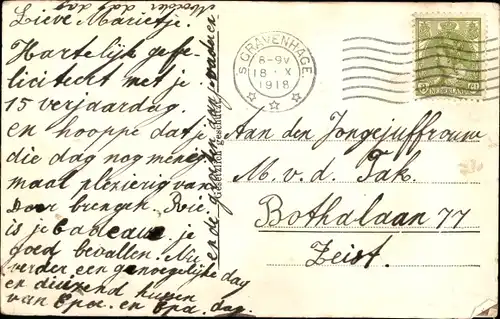 Lieve Marietje.
Hartelijk gefe-
liciteert met je
15 verjaardag.
en hooppe dat je
die dag nog menig
maal plezierig van
Door brengen. Rie.
is je cadeau je
goed bevallen. Nu
verder een genoegelijke dag
en duizend kussen
van Opoe. en Opa. dag.
S GRAVENHAGE
8-9V
18 X
1918
NEDERLAND
Aan den Jongejuffrouw
M. v. d. Tak.
Bothalaan 77
Zeist.